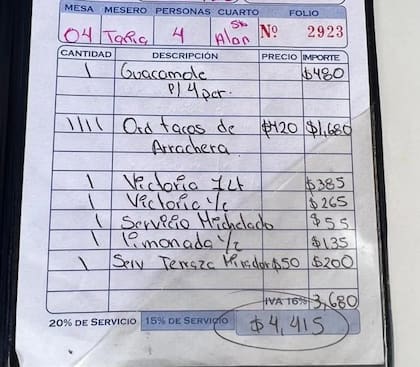 MESA MESERO PERSONAS CUARTO FOLIO
04 Tania 4 Alan Nº 2923
CANTIDAD DESCRIPCIÓN PRECIO IMPORTE
1 Guacamole $480
P/ 4 per.
1111 Ord tacos de $420 $1,680
Arrachera.
1 Victoria 1Lt $385
1 Victoria 1/2 $265
1 Servicio Michelado $55
1 limonada 1/2 $135
1 Serv Terraza Mirador $50 $200
IVA 16% 3,680
20% DE SERVICIO 15% DE SERVICIO $4,415